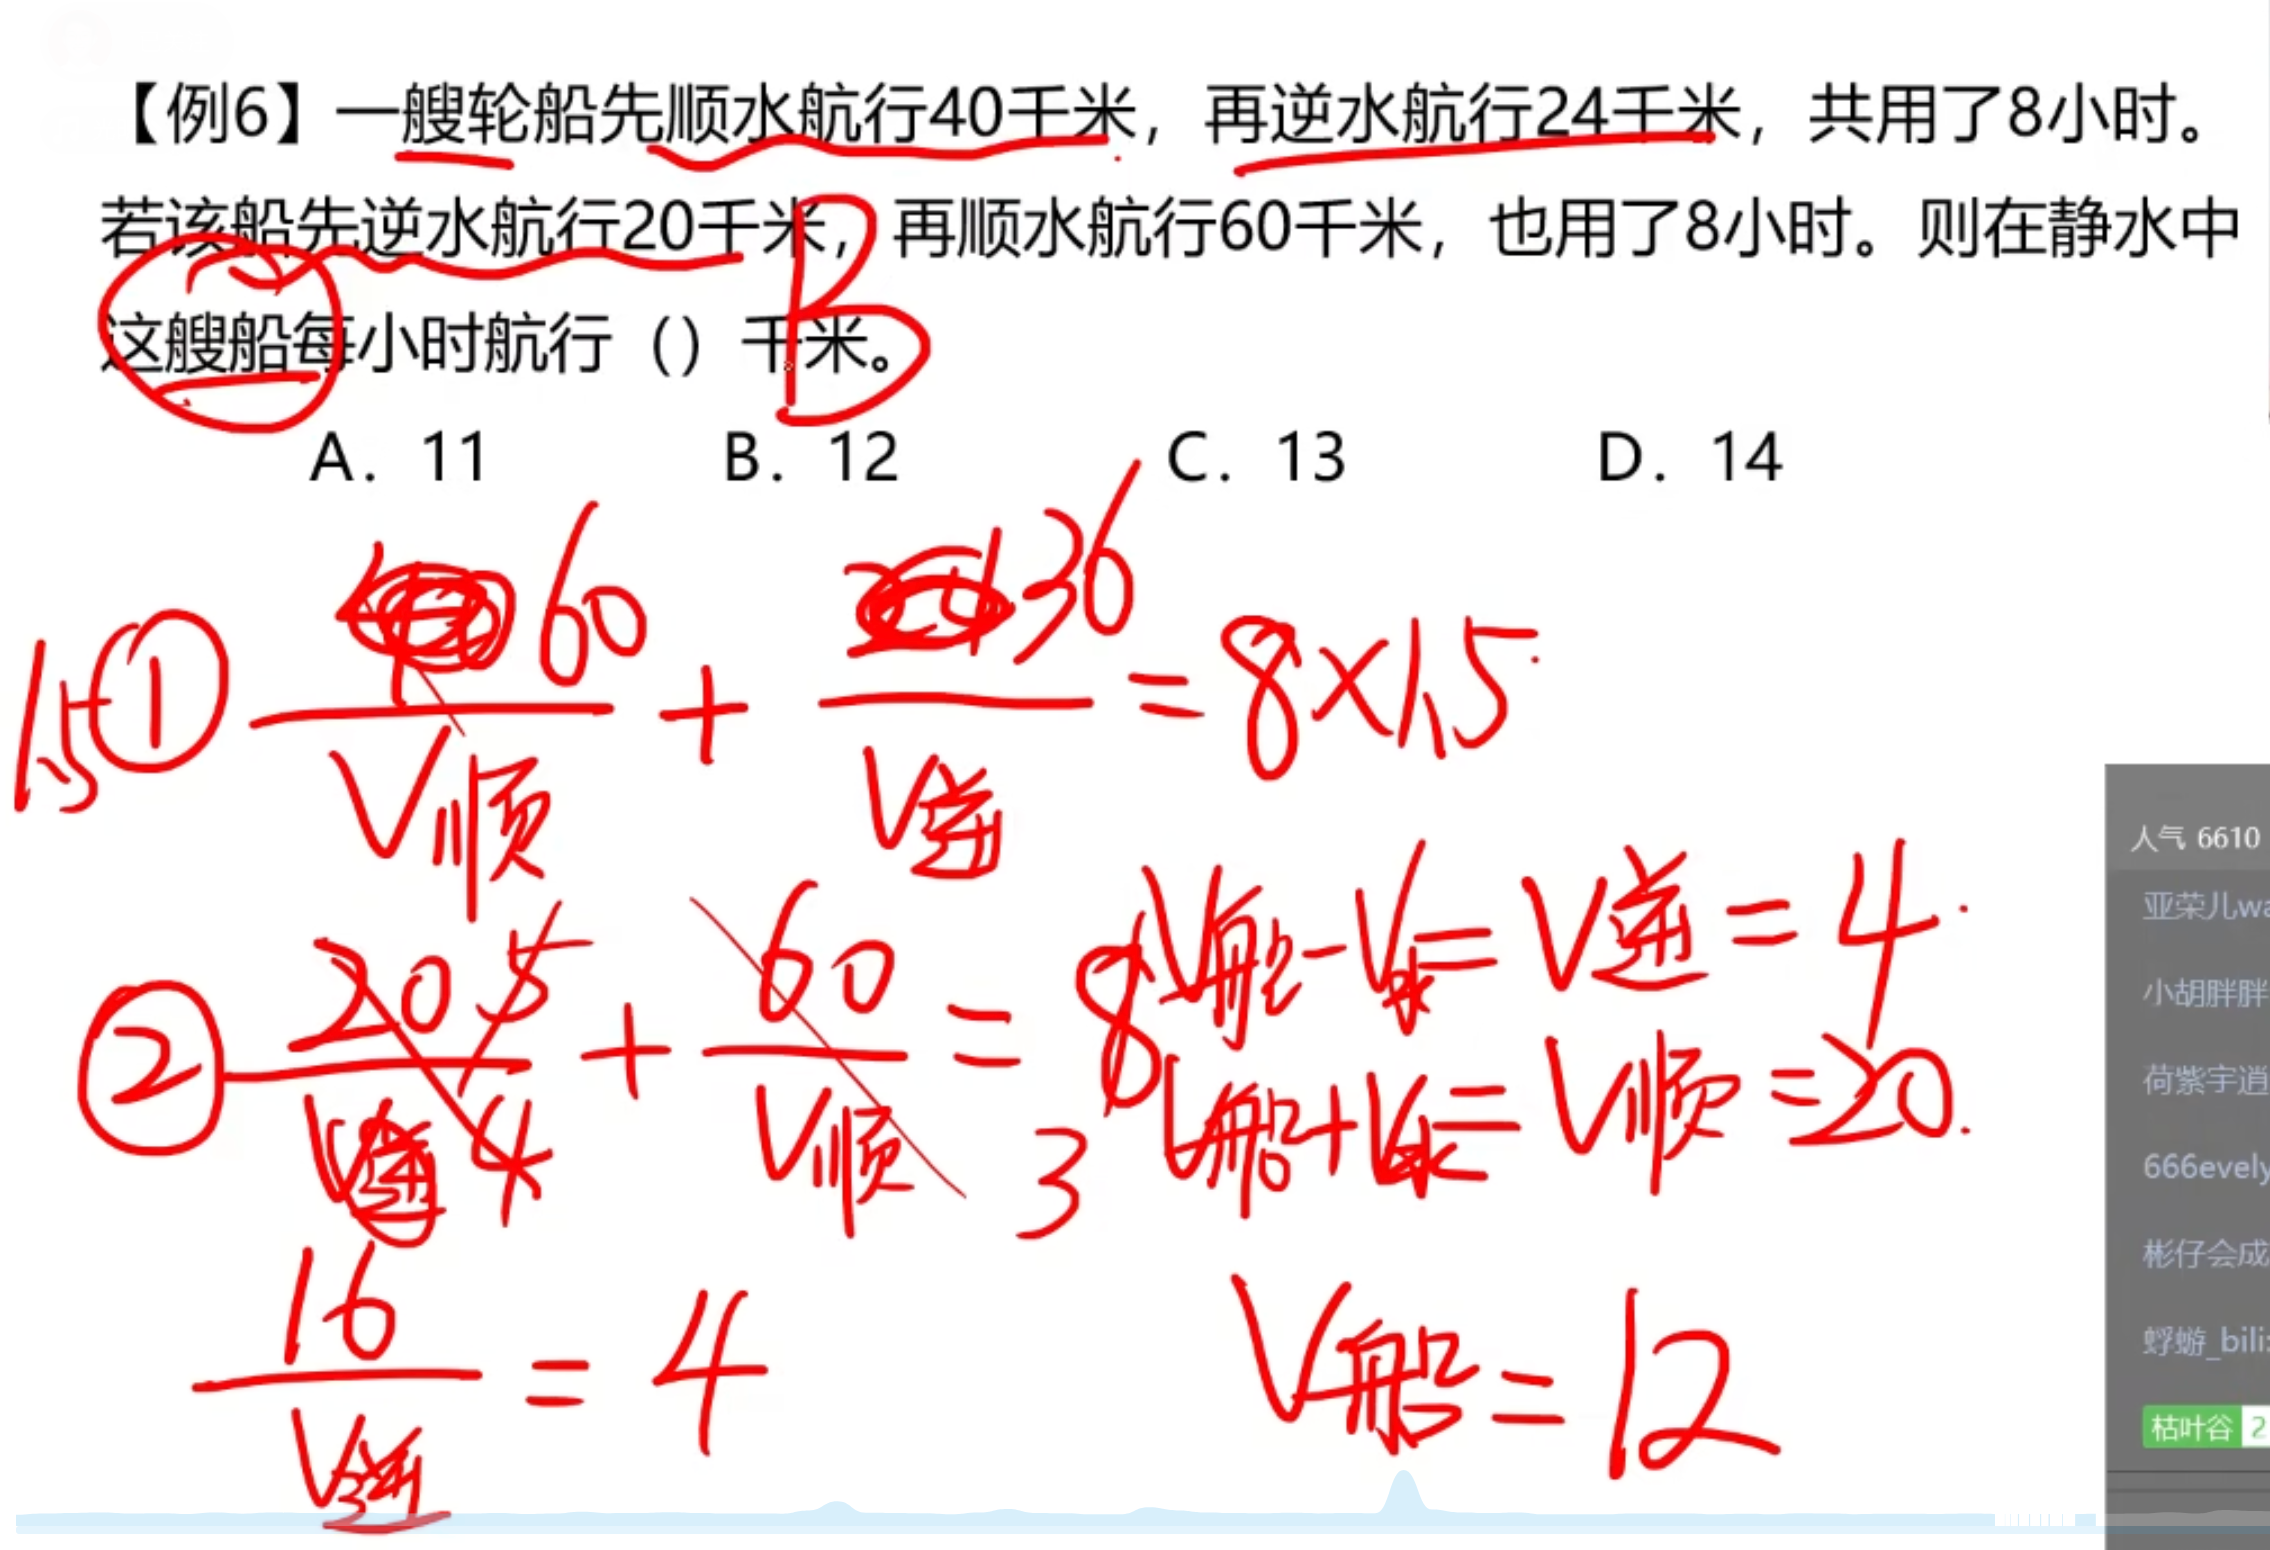 【例6】一艘轮船先顺水航行40千米，再逆水航行24千米，共用了8小时。
若该船先逆水航行20千米，再顺水航行60千米，也用了8小时。则在静水中
这艘船每小时航行（）千米。
B
A. 11 B. 12 C. 13 D. 14
1.5 ① 60/V顺 + 36/V逆 = 8×1.5
② 20/V逆 + 60/V顺 = 8
5
4
3
V船-V水=V逆=4
V船+V水=V顺=20
16/V逆 = 4
V船=12
人气 6610
亚荣儿wa
小胡胖胖
荷紫宇逍
666evely
彬仔会成
蜉蝣_bili
枯叶谷 2